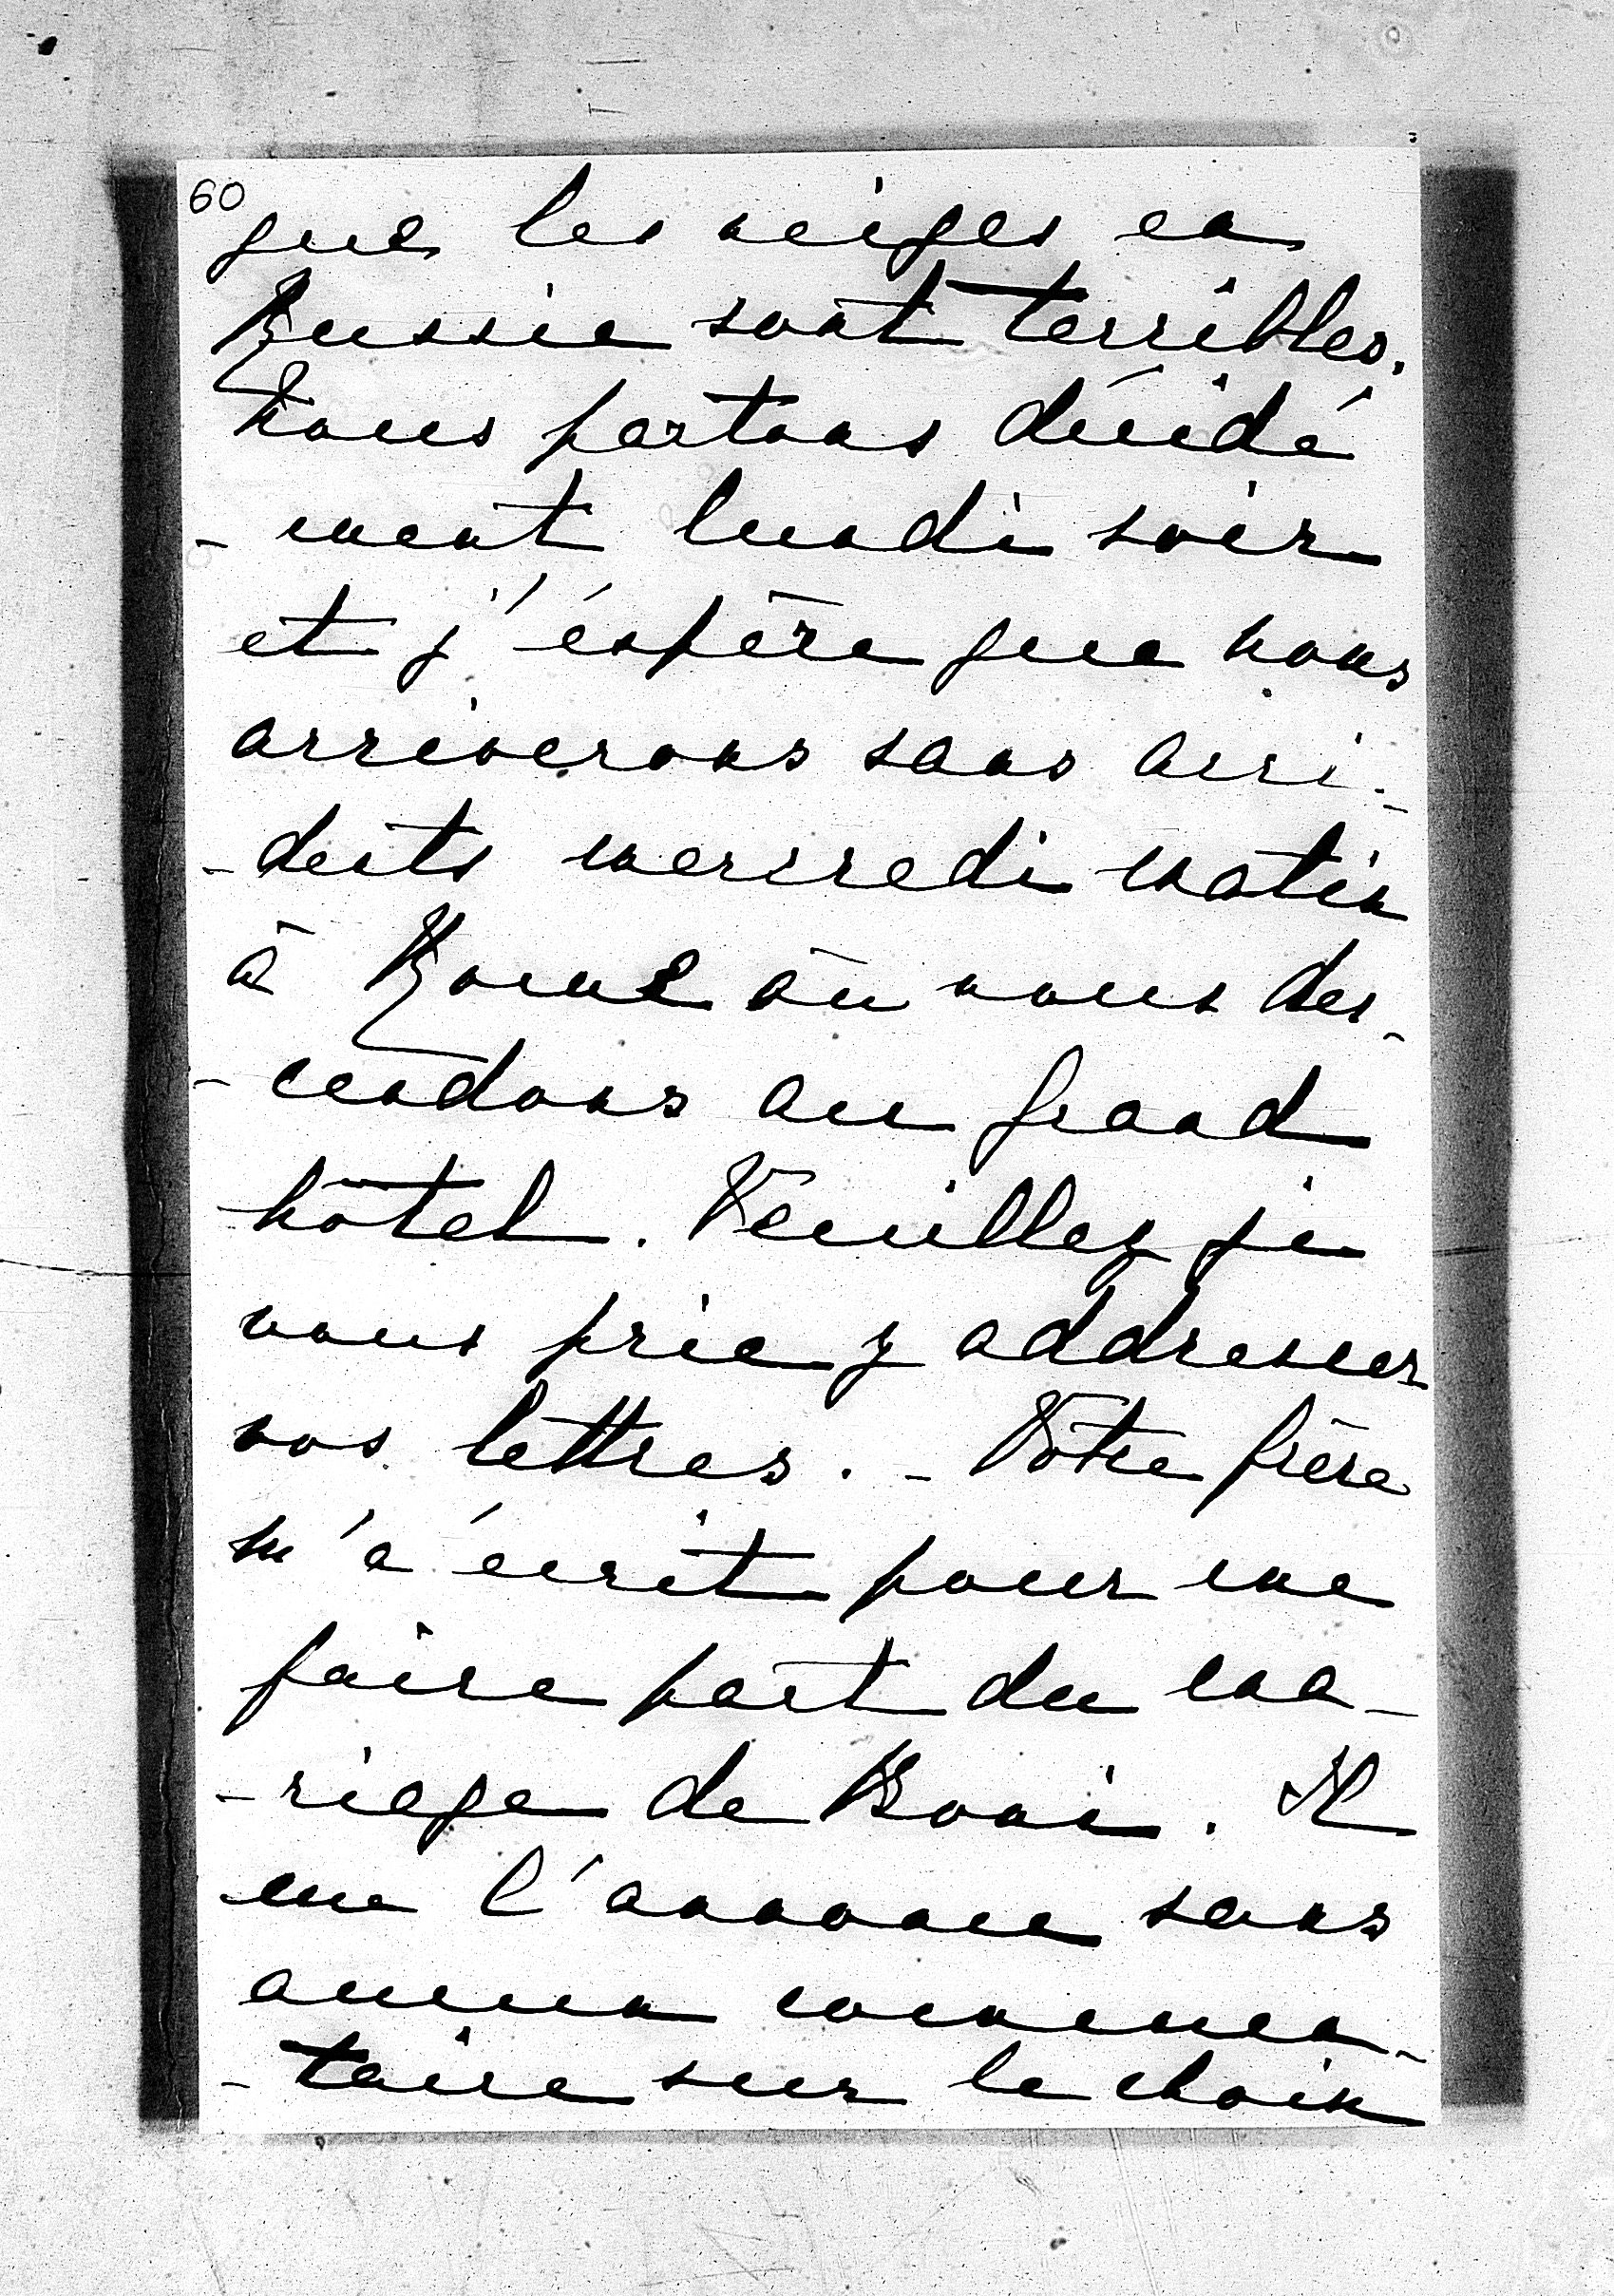 60
que les neiges en
Russie sont terribles.
Nous partons décidé
- ment lundi soir
et j'éspère que nous
arriverons sans acci-
- dents mercredi matin
à Rome où nous des-
- cendons au grand
hôtel. Veuillez je
vous prie y addresser
vos lettres. - Votre frère
m'a écrit pour me
faire part du ma-
- riage de Boni. Il
me l'annonce sans
aucun commen-
- taire sur le choix